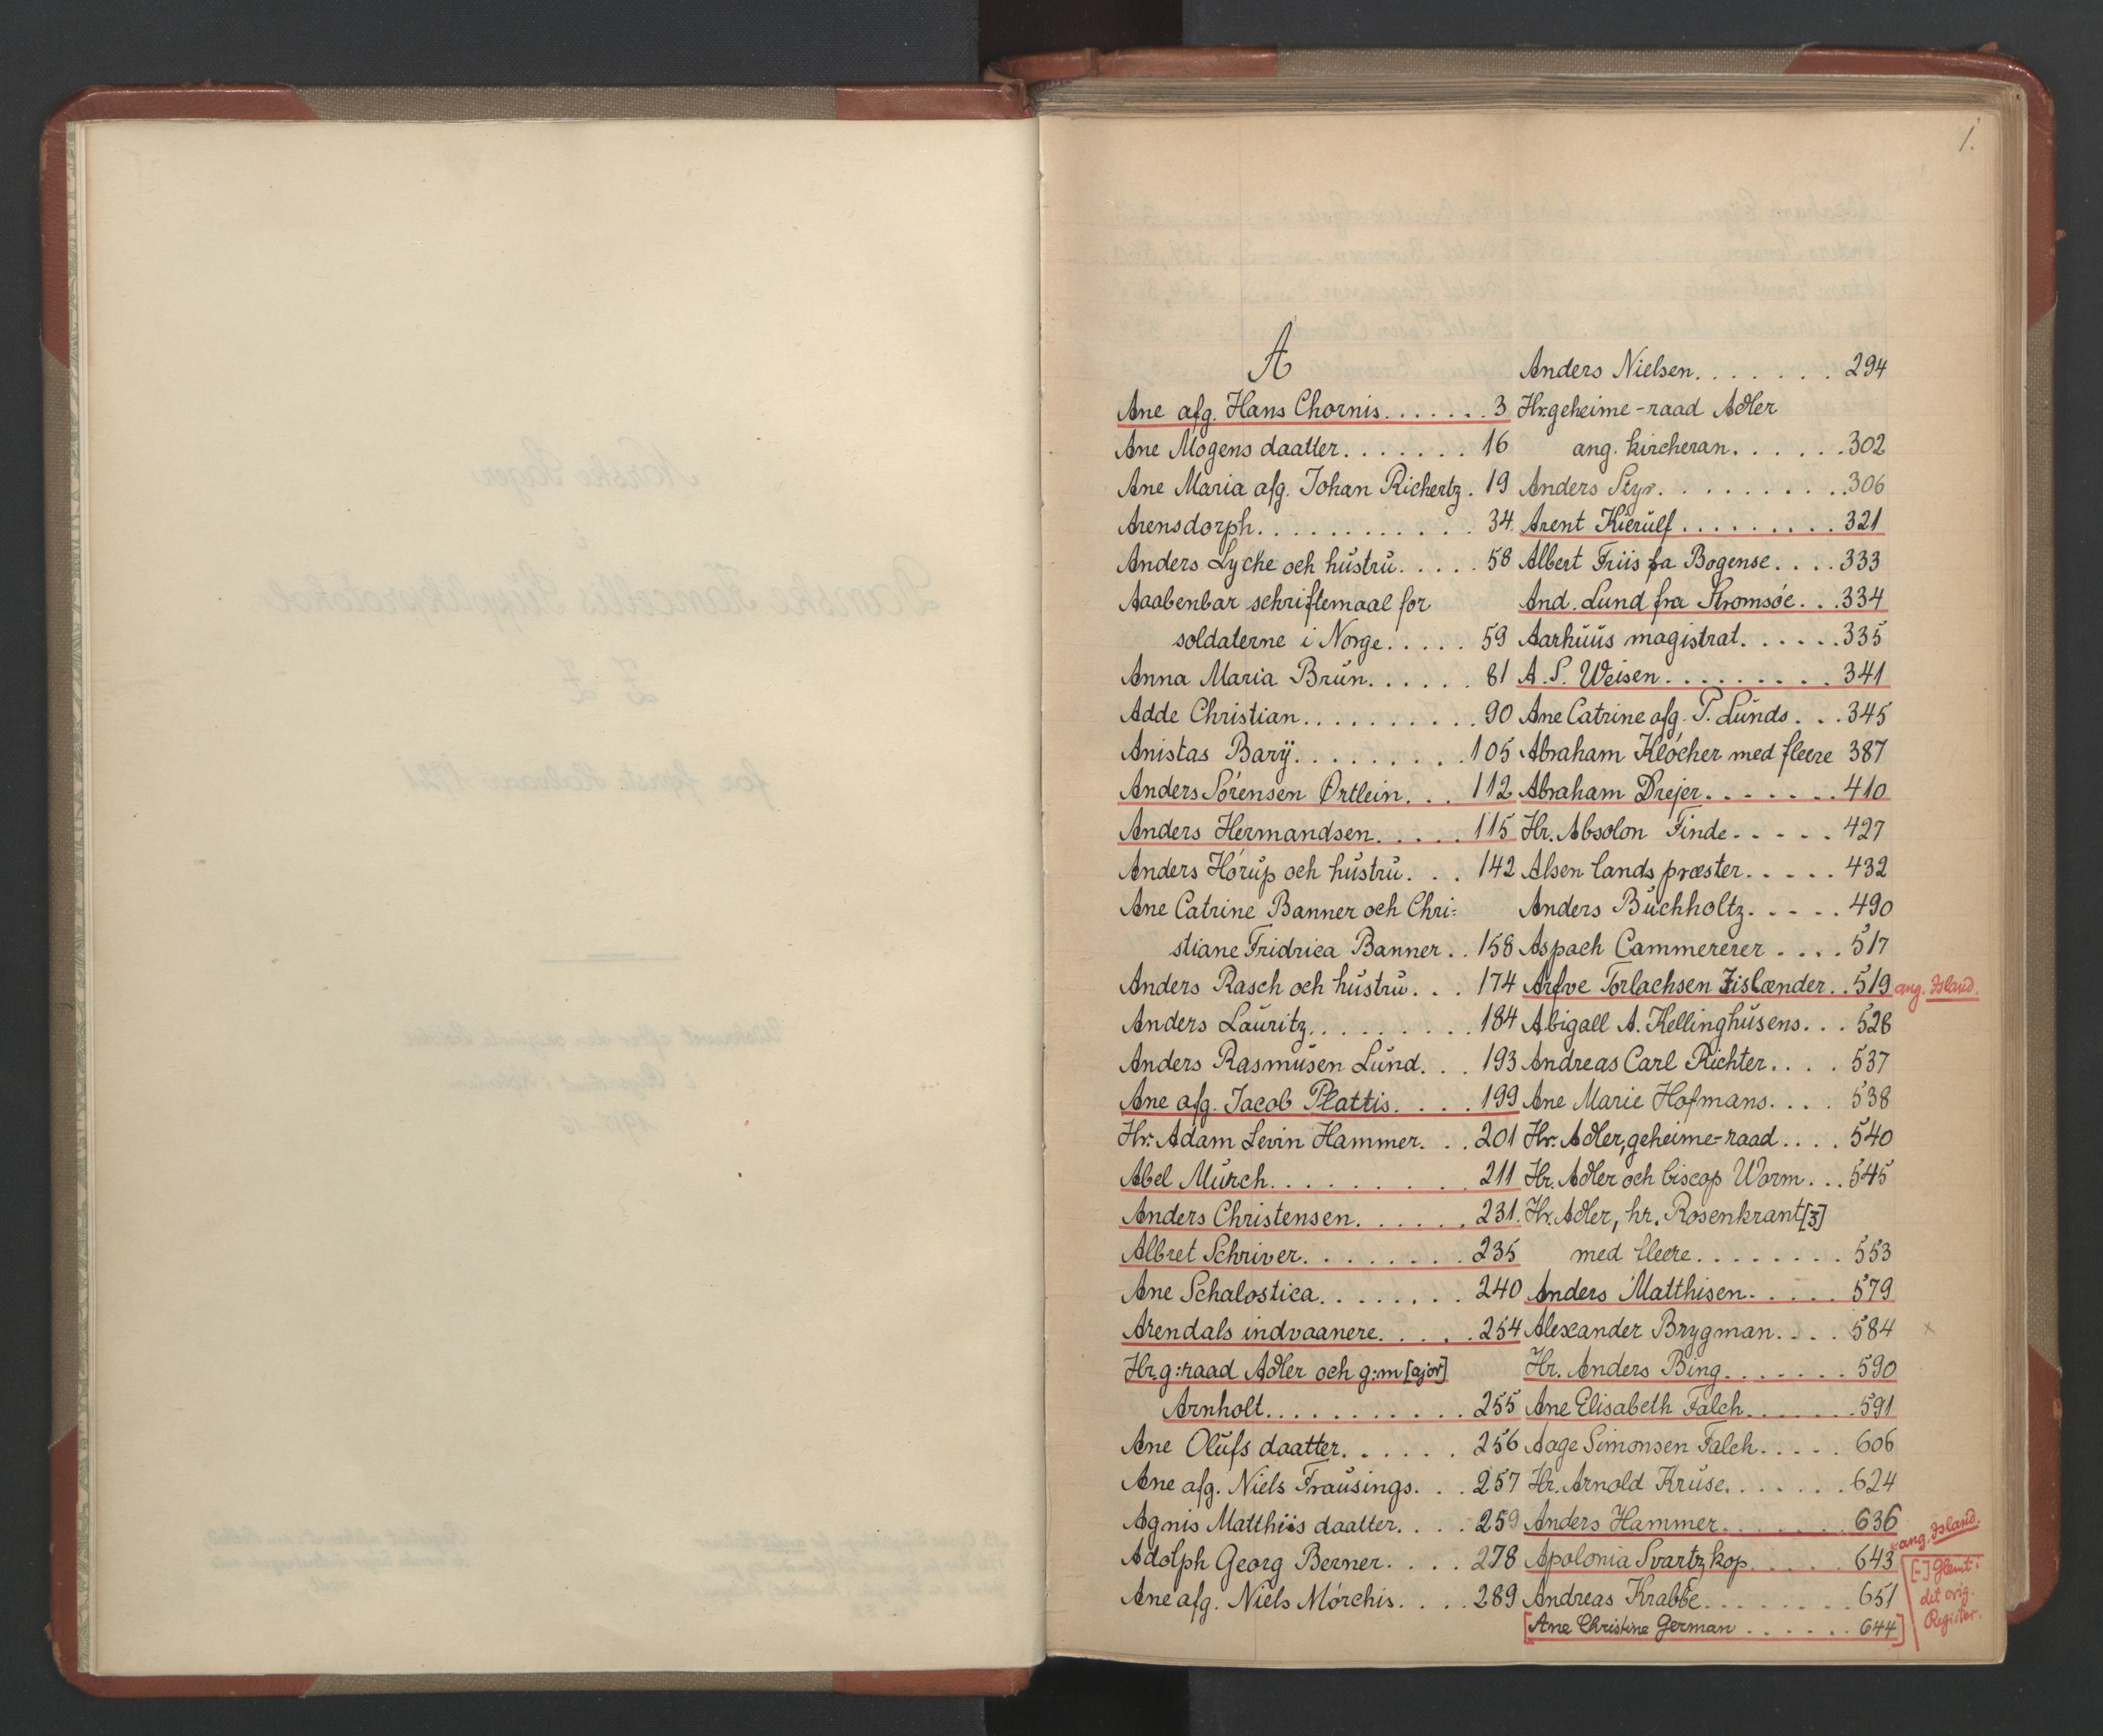 1.
A
Ane afg. Hans Chornis....... 3
Ane Mogens daatter....... 16
Ane Maria afg. Johan Richertz. 19
Arensdorph............ 34
Anders Lyche och hústrú..... 58
Aabenbar schriftemaal for
soldaterne i Norge..... 59
Anna Maria Brún...... 81
Adde Christian.......... 90
Anistas Barÿ......... 105
Anders Sörensen Ørtlein... 112
Anders Hermandsen..... 115
Anders Hörúp och hústrú... 142
Ane Catrine Banner och Chri=
stiane Fridrica Banner.. 158
Anders Rasch och hústrú... 174
Anders Laúritz......... 184
Anders Rasmúsen Lúnd... 193
Ane afg. Jacob Plattis.... 199
Hr. Adam Levin Hammer... 201
Abel Múnch.......... 211
Anders Christensen...... 231.
Albret Schriver......... 235
Ane Schalostica........ 240
Arendals indvaanere..... 254
Hr. g:raad Adler och g:m[ajor]
Arnholt........... 255
Ane Olúfs daatter...... 256
Ane afg. Niels Fraúsings... 257
Agnis Matthiis daatter.... 259
Adolph Georg Berner.... 278
Ane afg. Niels Mörchis.... 289
Anders Nielsen....... 294
Hr. geheime-raad Adler
ang. kircheran...... 302
Anders Styr.......... 306
Arent Kierúlf......... 321
Albert Friis fra Bogense.... 333
And. Lund fra Stromsöe... 334
Aarhúús magistrat..... 335
A. S. Weisen......... 341
Ane Catrine afg. P. Lúnds... 345
Abraham Klöcher med fleere 387
Abraham Drejer....... 410
Hr. Absolon Finde..... 427
Alsen lands præster..... 432
Anders Búchholtz..... 490
Aspach Cammererer.... 517
Arfve Torlachsen Iislænder.. 519 ang. Island.
Abigall A. Kellinghúsens... 528
Andreas Carl Richter.... 537
Ane Marie Hofmans.... 538
Hr. Adler, geheime-raad.... 540
Hr. Adler och biscop Worm... 545
Hr. Adler, hr. Rosenkrant[z]
med fleere........ 553
Anders Matthisen..... 579
Alexander Brygman.... 584 x
Hr. Anders Bing....... 590
Ane Elisabeth Falch....... 591
Aage Simonsen Falch..... 606
Hr. Arnold Krúse....... 624
Anders Hammer....... 636
Apolonia Svartzkop..... 643 ang. Island.
Andreas Krabbe........ 651
[Ane Christine German...... 644]
[-] Glemt i
det orig.
Register.